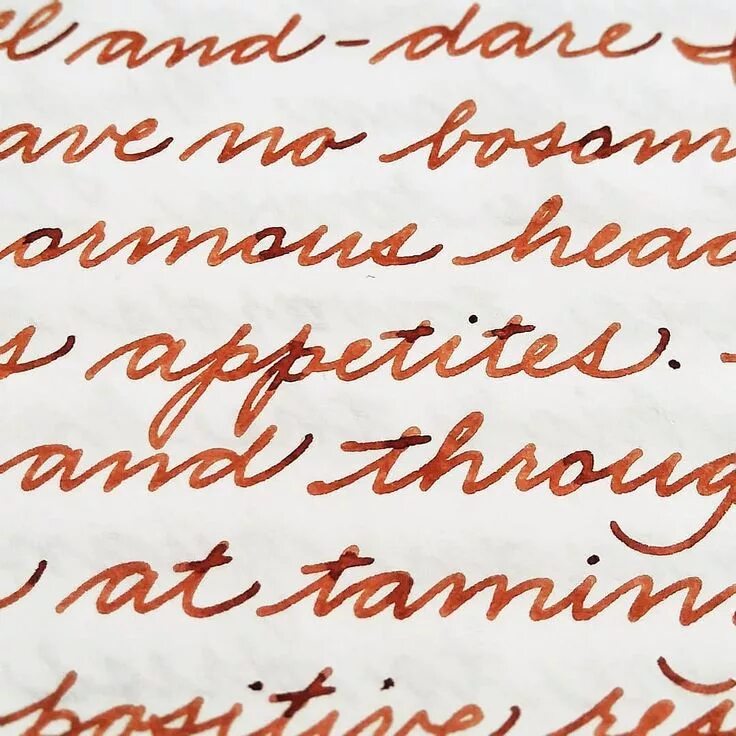 and - dare
ave no bosom
ormous head
s appetites. -
and throug
at tamin
positive res